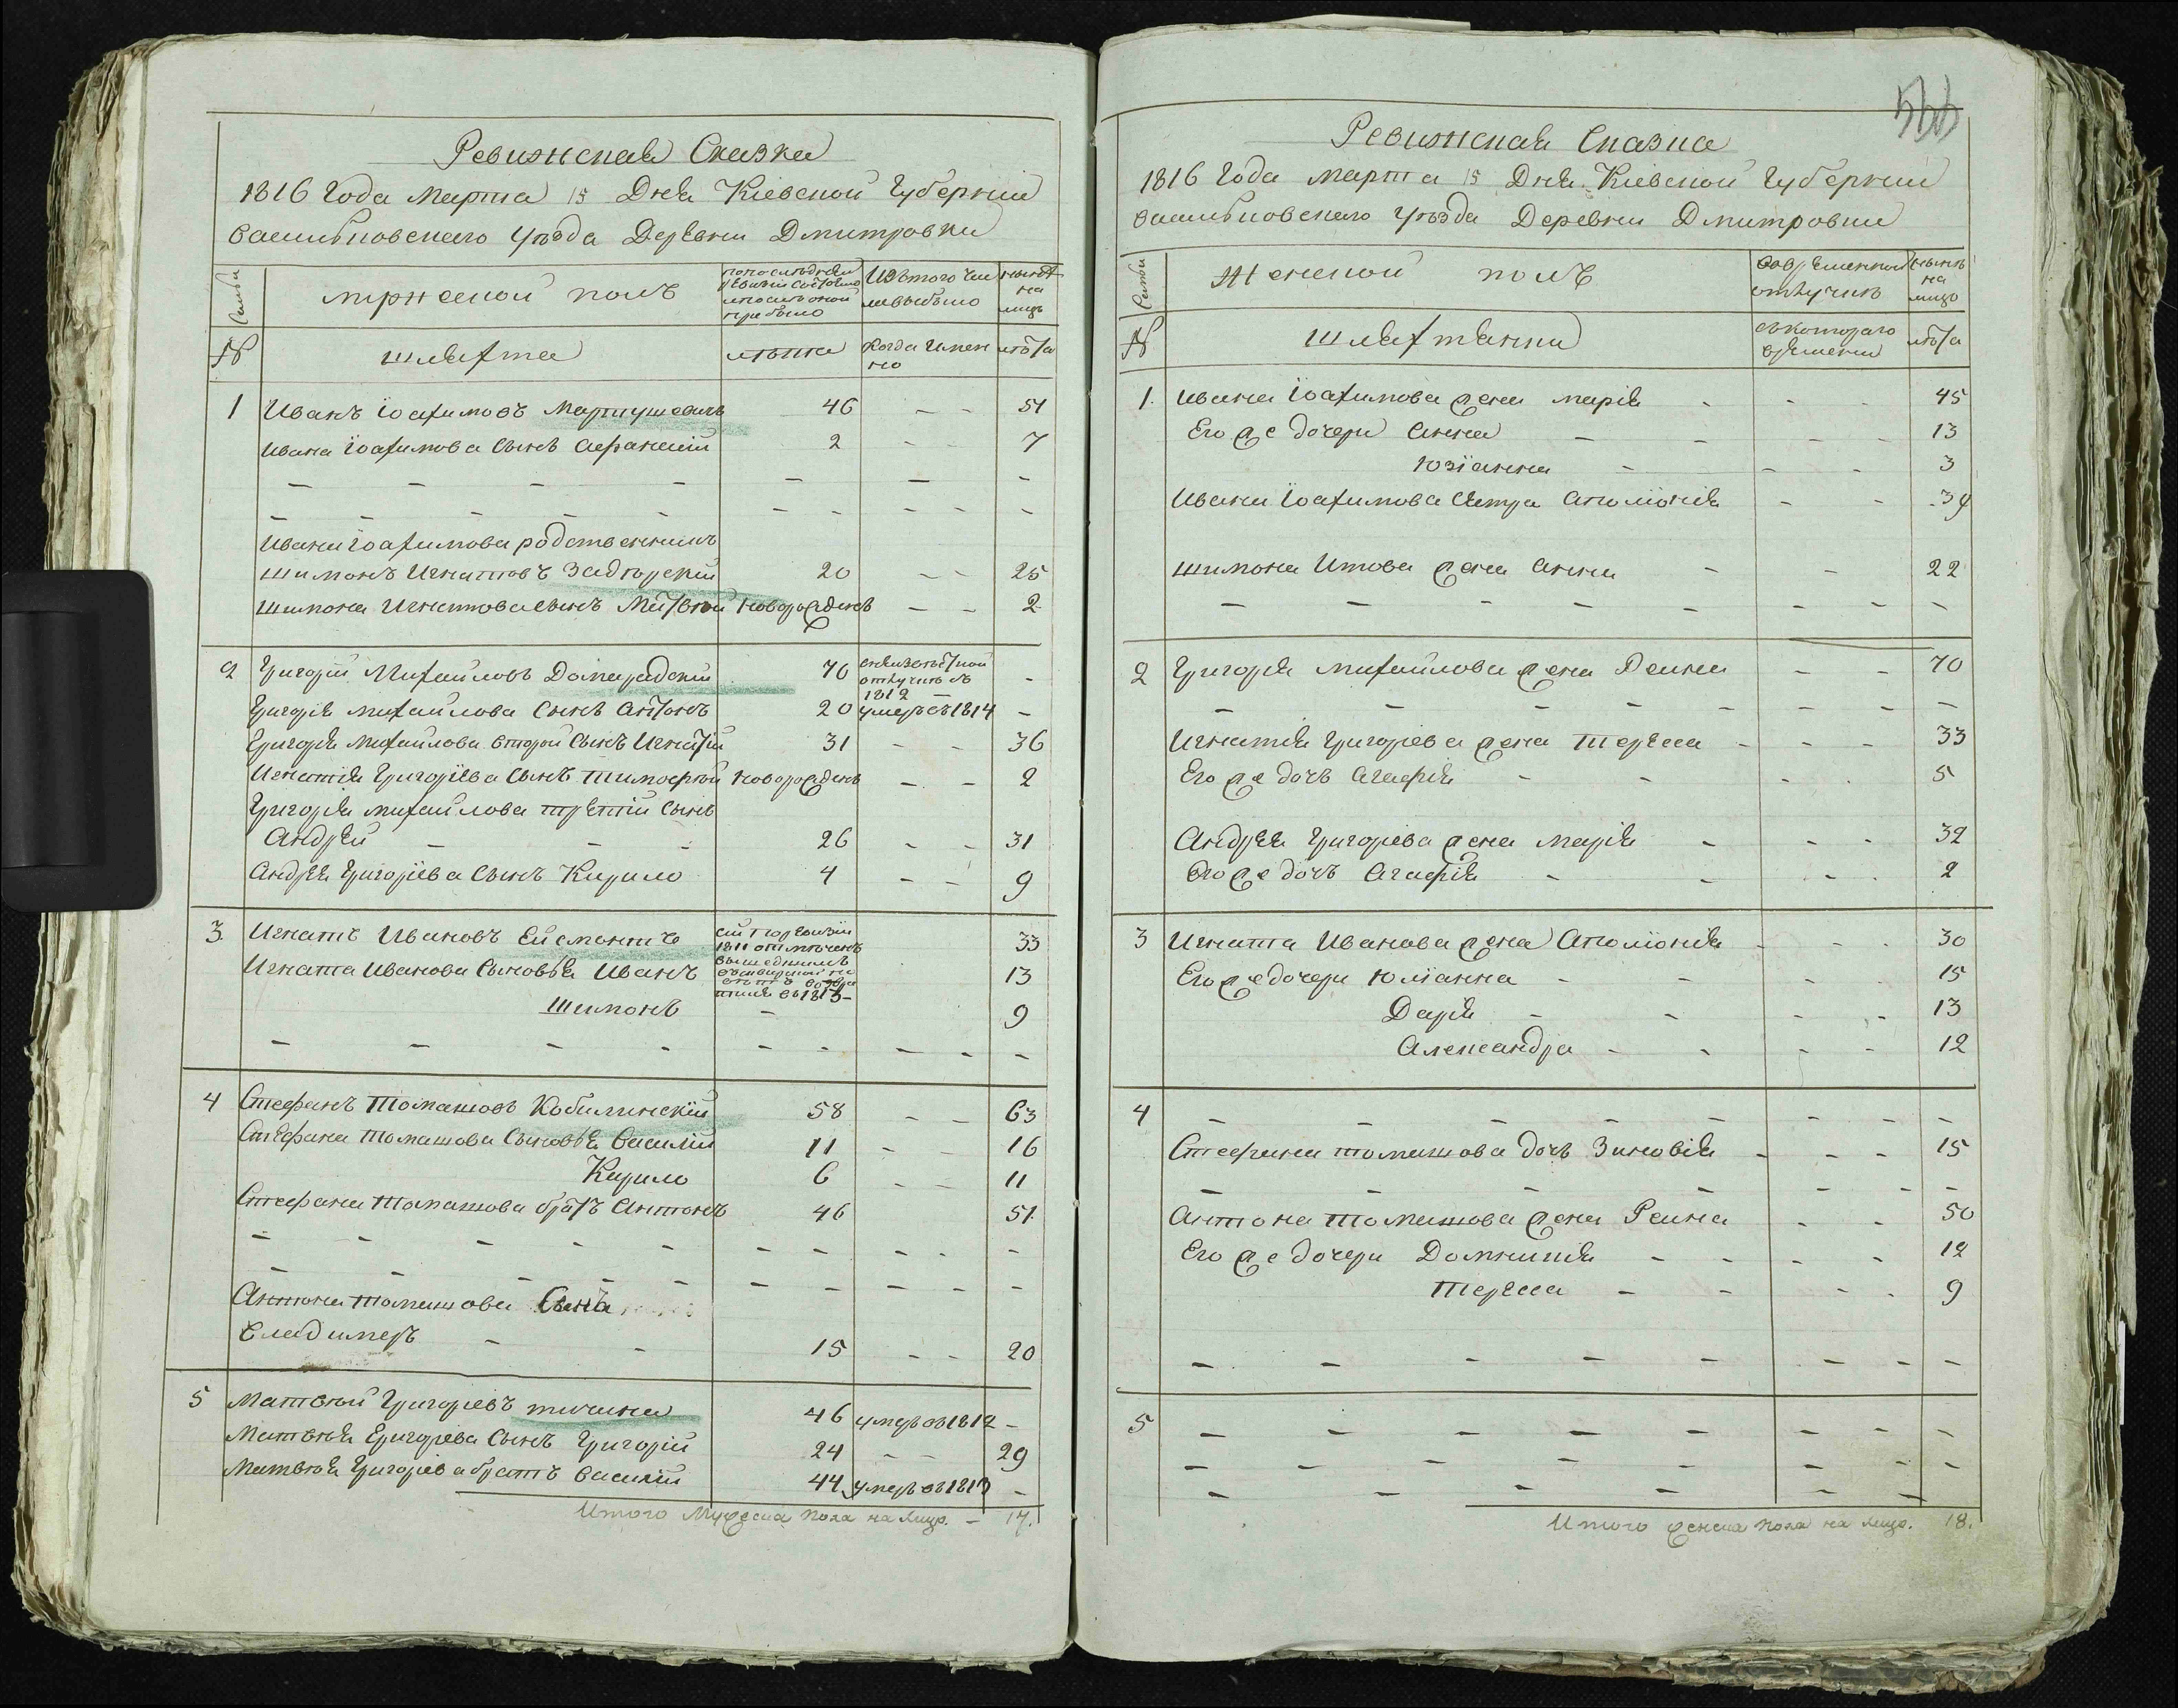 Ревижская Сказка
1816 Года Марта 15 Дня Кіевской Губерніи
Васильковского Уѣзда Деревни Дмитровки
Семьи
мужеской полъ
по последней ревизіи состояло и после оной прибыло
Изъ того числа выбыло
нынѣ на лицо
№
шляхта
лѣта
Когда имянно
лѣта
1 Иванъ Іоахимовъ Мартушевичъ 46 - - 51
Ивана Іоахимова Сынъ Афанасій 2 - - 7
Ивана Іоахимова родственникъ
Шимонъ Игнатовъ Задгорскій 20 - - 25
Шимона Игнатова сынъ Матвѣй новорожденъ - - 2
2 Григорій Михайловъ Домарадскій 70 въ отлучке съ 1812 -
Григорія Михайлова Сынъ Антонъ 20 умеръ въ 1814 -
Григорія Михайлова второй Сынъ Игнатій 31 - - 36
Игнатія Григоріева Сынъ Тимофтій новорожденъ - - 2
Григорія Михайлова третій Сынъ
Андрей - - - 26 - - 31
Андрея Григоріева Сынъ Кирило 4 - - 9
3 Игнатъ Ивановъ Ейсмонтъ 33
Игната Иванова Сыновья Иванъ 13
Шимонъ - 9
4 Стефанъ Томашовъ Кобилинскій 58 - - 63
Стефана Томашова Сыновья Василій 11 - - 16
Кирило 6 - - 11
Стефана Томашова братъ Антонъ 46 51
Антона Томашова Сынъ
Владимеръ - - 15 - - 20
5 Матвѣй Григоріевъ тичина 46 умеръ въ 1812 -
Матвѣя Григоріева Сынъ Григорій 24 - - 29
Матвѣя Григоріева братъ Василій 44 умеръ въ 1813 -
Итого Мужеска пола на лицо. - 17.
566
Ревижская Сказка
1816 Года Марта 15 Дня Кіевской Губерніи
Васильковского Уѣзда Деревни Дмитровки
Семьи
Женской полъ
Во временной отлучкѣ
нынѣ на лицо
№
Шляхтянки
съ котораго времени
лѣта
1. Ивана Іоахимова жена Марія - - - 45
Его же дочери Анна - - - - 13
Юзіанна - - - 3
Ивана Іоахимова Сестра Аполіонія - - 34
Шимона жена Анна - - 22
2 Григорія Михайлова жена - - 70
Игнатія Григоріева жена Тереса - - - 33
Его же дочъ Агафія - - - 5
Андрея Григоріева жена Марія - - - 32
Его же дочъ Агафія - - - - 2
3 Игната Иванова жена Аполіонія - - - 30
Его же дочери Юліанна - - - 15
Дарія - - - - 13
Александра - - - - 12
4
Стефана Томашова дочъ Зиновія - - - 15
Антона Томашова жена - - 50
Его же дочери Домникія - - - - 12
Тереса - - - - 9
5
Итого женска пола на лицо. 18.